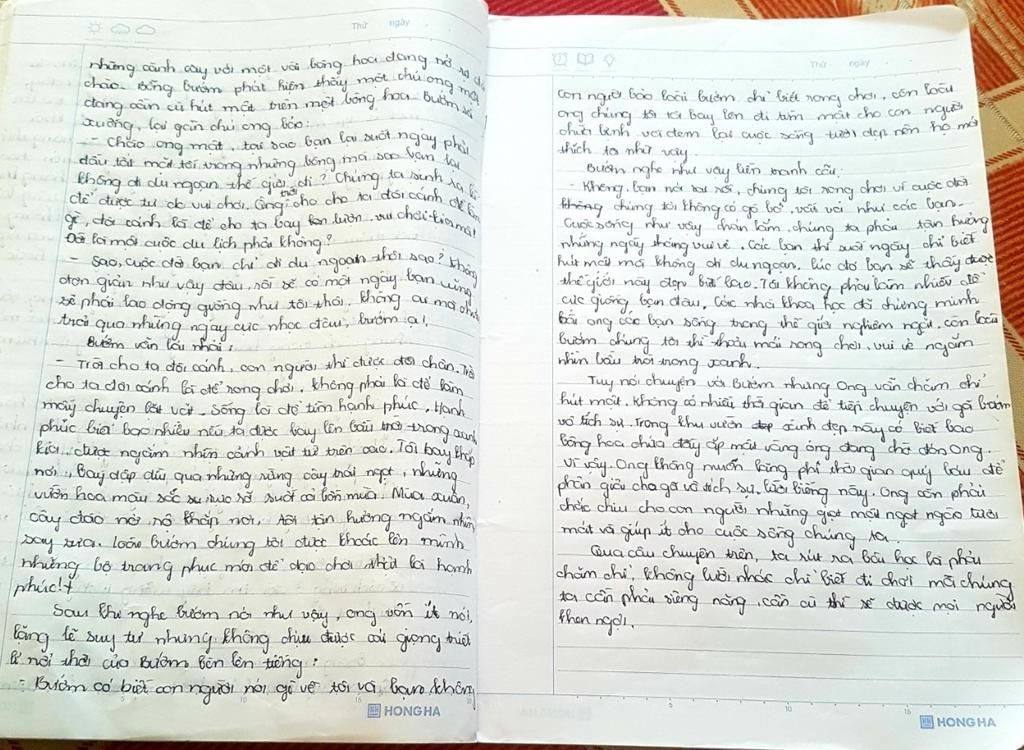 Thứ ngày
những cành cây với một vài bông hoa đang nở rộ
chào. Bỗng bướm phát hiện thấy một chú ong mật
đang cần cù hút mật trên một bông hoa. Bướm
xuống, lại gần chú ong bảo:
- Chào ong mật, tại sao bạn lại suốt ngày phải
đầu tắt mặt tối trong những bông mà sao bạn lại
không đi du ngoạn thế giới đi? Chúng ta sinh ra là
để được tự do vui chơi. Ông trời cho ta đôi cánh để làm
gì, đôi cánh là để cho ta bay lượn, vui chơi
Đó là một cuộc du lịch phải không?
- Sao, cuộc đời bạn chỉ đi du ngoạn thôi sao? Không
đơn giản như vậy đâu, rồi sẽ có một ngày bạn cũng
sẽ phải lao động giống như tôi thôi, không ai mà
trải qua những ngày cực nhọc đâu, bướm ạ!
Bướm vẫn lải nhải:
- Trời cho ta đôi cánh, con người thì được đôi chân. Trời
cho ta đôi cánh là để rong chơi, không phải là để làm
mấy chuyện lặt vặt. Sống là để tìm hạnh phúc. Hạnh
phúc biết bao nhiêu nếu ta được bay lên bầu trời trong xanh
kia, được ngắm nhìn cảnh vật từ trên cao. Tôi bay khắp
nơi, bay dập dìu qua những rặng cây trái ngọt, những
vườn hoa màu sắc sặc sỡ suốt cả bốn mùa. Mùa xuân,
cây đào nở rộ khắp nơi, tôi tận hưởng ngắm nhìn
say sưa. Loài bướm chúng tôi được khoác lên mình
những bộ trang phục mới để dạo chơi thật là hạnh
phúc!
Sau khi nghe bướm nói như vậy, ong vốn ít nói,
lặng lẽ suy tư nhưng không chịu được cái giọng triết
lí nửa thời của Bướm bèn lên tiếng:
- Bướm có biết con người nói gì về tôi và bạn không
HONG HA
Thứ ngày
Con người bảo loài bướm chỉ biết rong chơi, còn loài
ong chúng tôi thì bay lên đi tìm mật cho con người
chữa bệnh và đem lại cuộc sống tươi đẹp nên họ mới
thích ta như vậy.
Bướm nghe như vậy liền tranh cãi:
- Không, bạn nói sai rồi, chúng tôi rong chơi vì cuộc đời
không chúng tôi không có gò bó, vất vả như các bạn.
Cuộc sống như vậy chán lắm, chúng ta phải tận hưởng
những ngày tháng vui vẻ. Các bạn thì suốt ngày chỉ biết
hút mật mà không đi du ngoạn, lúc đó bạn sẽ thấy được
thế giới này đẹp biết bao. Tôi không phải làm nhiều để
cực giống bạn đâu. Các nhà khoa học đã chứng minh
loài ong các bạn sống trong thế giới nghiêm ngặt, còn loài
bướm chúng tôi thì thoải mái rong chơi, vui vẻ ngắm
nhìn bầu trời trong xanh.
Tuy nói chuyện với Bướm nhưng Ong vẫn chăm chỉ
hút mật. Không có nhiều thời gian để tiếp chuyện với gã bướm
vô tích sự. Trong khu vườn xinh đẹp này có biết bao
bông hoa chứa đầy ắp mật vàng óng đang chờ đón Ong.
Vì vậy, Ong không muốn lãng phí thời gian quý báu để
phân giải cho gã vô tích sự, lười biếng này. Ong còn phải
chắt chiu cho con người những giọt mật ngọt ngào tươi
mát và giúp ít cho cuộc sống chúng ta.
Qua câu chuyện trên, ta rút ra bài học là phải
chăm chỉ, không lười nhác chỉ biết đi chơi mà chúng
ta cần phải siêng năng, cần cù thì sẽ được mọi người
khen ngợi.
HONG HA